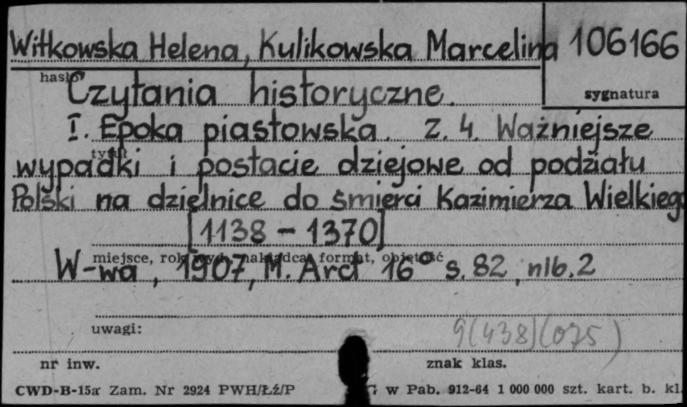 Witkowska Helena, Kulikowska Marcelina 106166
hasło
sygnatura
Czytania historyczne.
I. Epoka piastowska. Z. 4. Ważniejsze
tytuł
wypadki i postacie dziejowe od podziału
Polski na dzielnice do śmierci Kazimierza Wielkiego
[1138 - 1370]
miejsce, rok wyd., nakładca, format, objętość
W-wa, 1907, M. Arct 16° s. 82, nlb. 2
uwagi: 9(438)(075)
nr inw. znak klas.
CWD-B-15a Zam. Nr 2924 PWH/Łź/P w Pab. 912-64 1 000 000 szt. kart. b. kl.